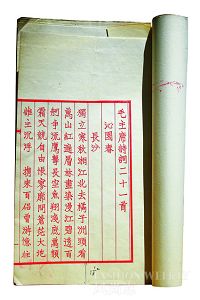 毛主席詩詞二十一首
沁園春
長沙
獨立寒秋湘江北去橘子洲頭看
萬山紅遍層林盡染漫江碧透百
舸爭流鷹擊長空魚翔淺底萬類
霜天競自由悵寥廓問蒼茫大地
誰主沉浮 攜來百侶曾游憶往